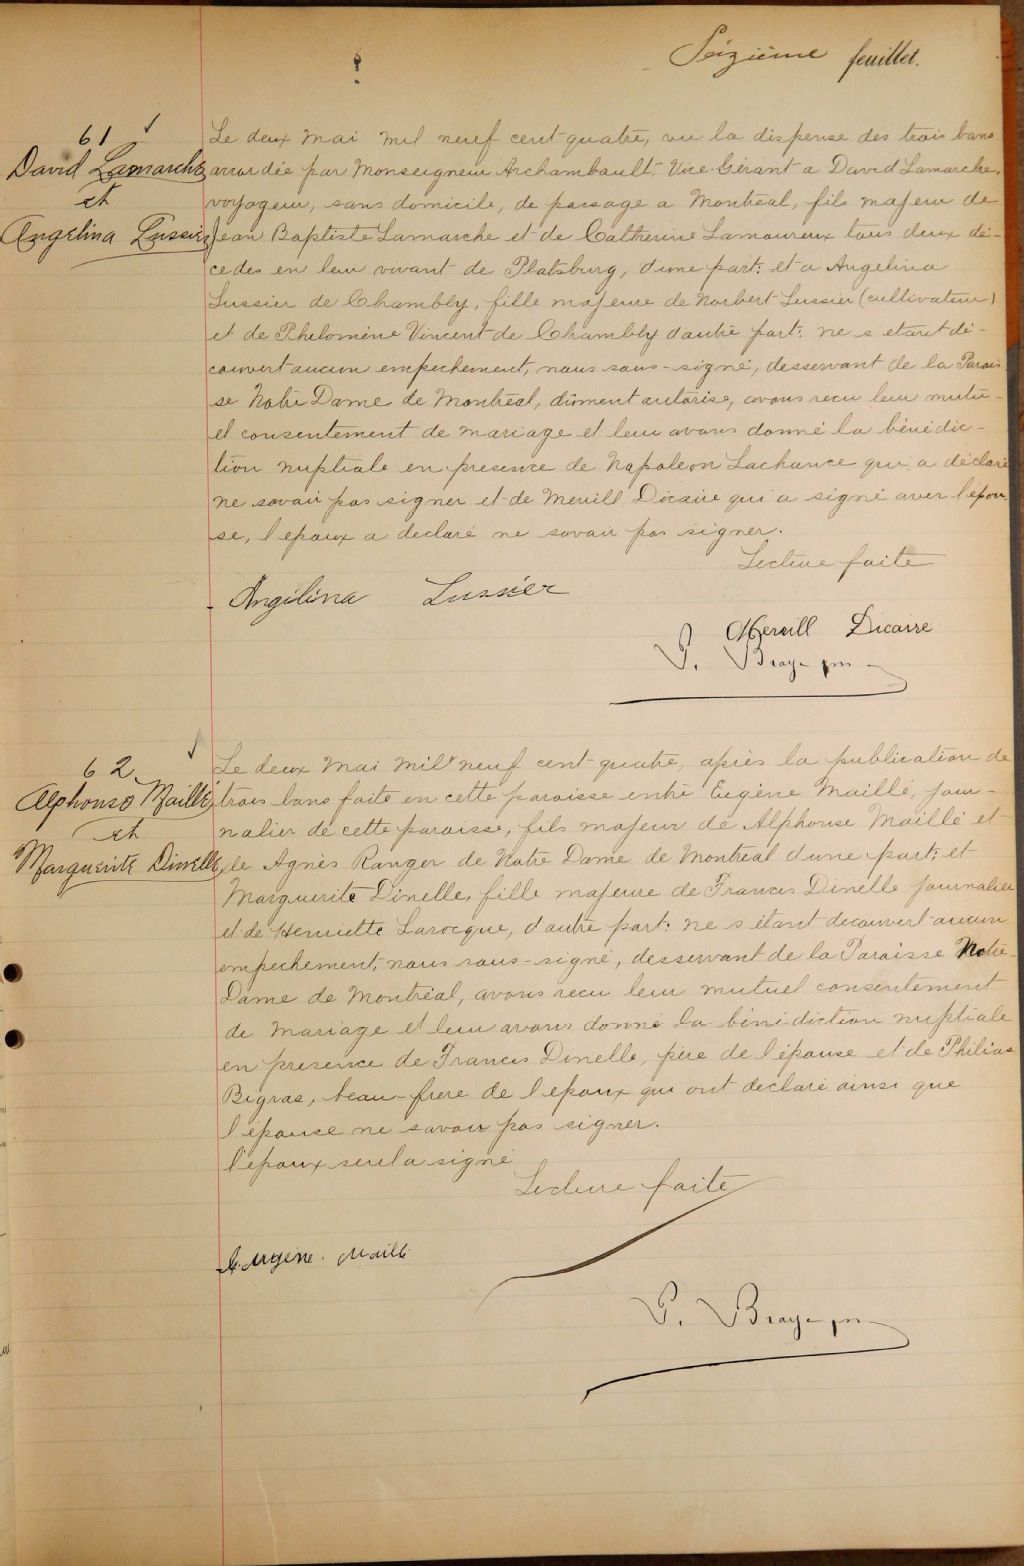 Seizième feuillet.
61
David Lamarche
et
Angelina Lussier
Le deux Mai mil neuf cent quatre, vu la dispense des trois bans
accordée par Monseigneur Archambault Vice-Gérant a David Lamarche,
voyageur, sans domicile, de passage a Montreal, fils majeur de
Jean Baptiste Lamarche et de Catherine Lamoureux tous deux dé-
cedes en leur vivant de Platsburg, d'une part: et a Angelina
Lussier de Chambly, fille majeure de Norbert Lussier (cultivateur)
et de Phelomène Vincent de Chambly d'autre part: ne s etant dé-
couvert aucun empechement, nous sous-signé, desservant de la Parois
se Notre Dame de Montreal, dûment autorise, avons recu leur mutu-
el consentement de mariage et leur avons donné la bénédic-
tion nuptiale en presence de Napoleon Lachance qui a déclaré
ne savoir pas signer et de Merill Dicaire qui a signé avec l'épou-
se, l epoux a declaré ne savoir pas signer.
Lecture faite
Angilina Lussier
Merill Dicaire
P. Braye
62
Alphonse Maillé
et
Marguerite Dinelle
Le deux Mai Mil neuf cent quatre, après la publication de
trois bans faite en cette paroisse entre Eugène Maillé, jour-
nalier de cette paroisse, fils majeur de Alphonse Maillé et
de Agnès Ranger de Notre Dame de Montréal d'une part: et
Marguerite Dinelle, fille majeure de Francis Dinelle journalier
et de Henriette Larocque, d'autre part: ne s'étant decouvert aucun
empechement, nous sous-signé, desservant de la Paroisse Notre-
Dame de Montréal, avons recu leur mutuel consentement
de mariage et leur avons donné la bénédiction nuptiale
en presence de Francis Dinelle, père de l'épouse et de Philias
Bigras, beau-frere de l epoux qui ont declaré ainsi que
l'épouse ne savoir pas signer.
l'epoux seul a signé
Lecture faite
Maillé
P. Braye